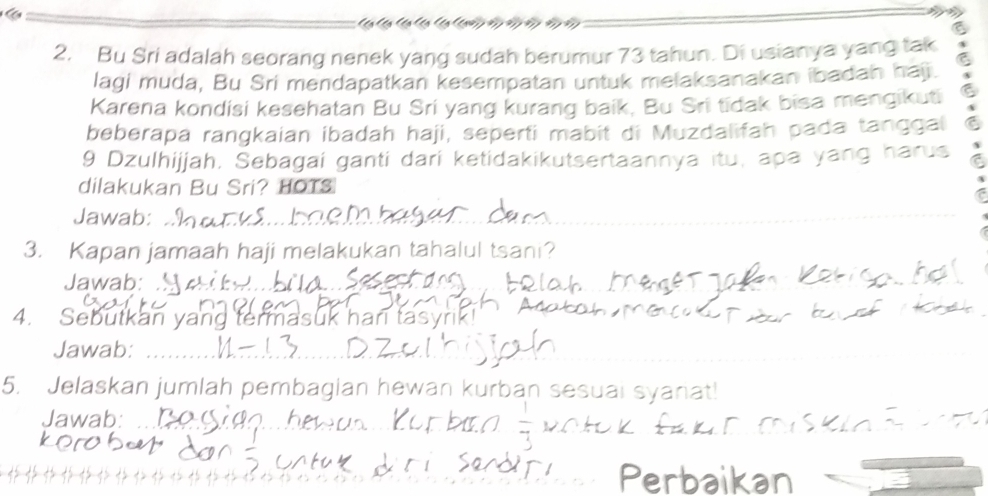 2. Bu Sri adalah seorang nenek yang sudah berumur 73 tahun. Di usianya yang tak
lagi muda, Bu Sri mendapatkan kesempatan untuk melaksanakan ibadah haji.
Karena kondisi kesehatan Bu Sri yang kurang baik, Bu Sri tidak bisa mengikuti
beberapa rangkaian ibadah haji, seperti mabit di Muzdalifah pada tanggal
9 Dzulhijjah. Sebagai ganti dari ketidakikutsertaannya itu, apa yang harus
dilakukan Bu Sri? HOTS
Jawab: harus membayar dam
3. Kapan jamaah haji melakukan tahalul tsani?
Jawab: yaitu bila seseorang telah mengerjakan ketiga hal
yaitu jumrah Aqabah, mencukur
4. Sebutkan yang termasuk hari tasyrik!
Jawab: 11-13 Dzulhijjah
5. Jelaskan jumlah pembagian hewan kurban sesuai syariat!
Jawab: Bagian hewan kurban 1/3 untuk fakir miskin
kerabat dan 1/3 untuk diri sendiri
Perbaikan